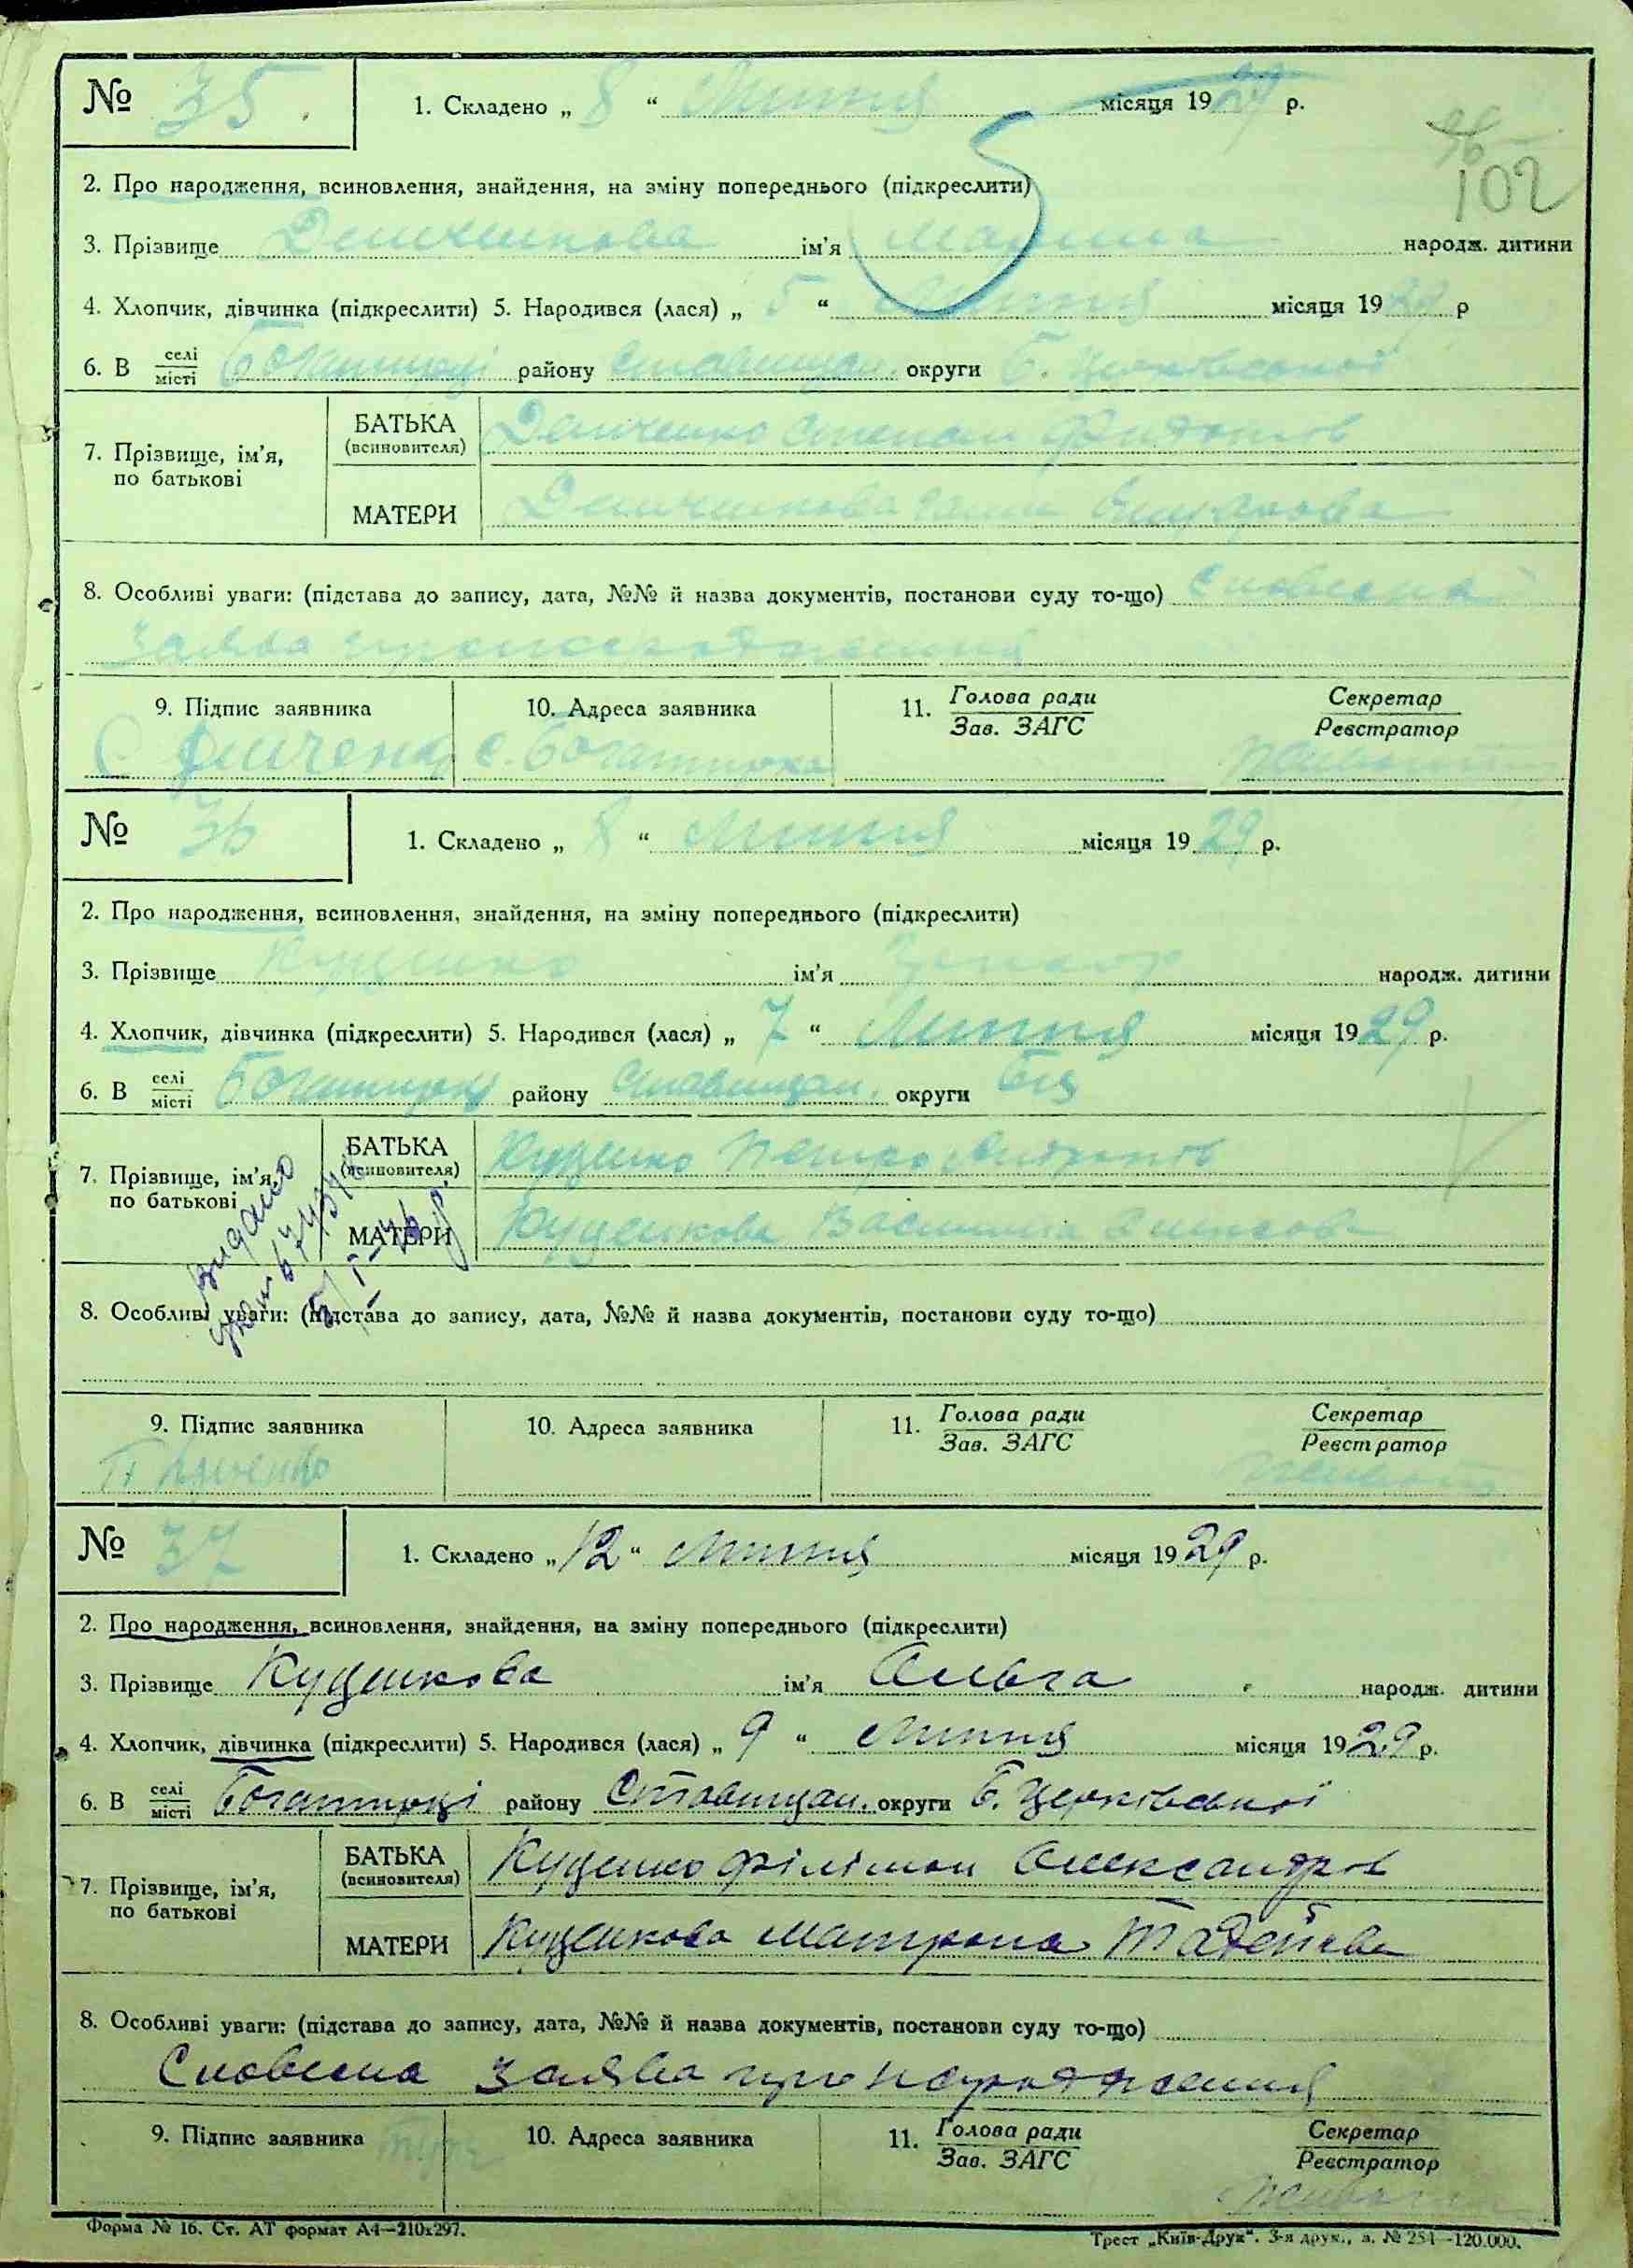 № 35. 1. Складено „ 8 “ Липня місяця 1929 р.
96
102
2. Про народження, всиновлення, знайдення, на зміну попереднього (підкреслити)
3. Прізвище Демченкова ім'я народж. дитини
4. Хлопчик, дівчинка (підкреслити) 5. Народився (лася) „ 5 “ Липня місяця 1929 р
6. В селі/місті Богатирці району Ставищан. округи Б. Церківської
7. Прізвище, ім'я, по батькові
БАТЬКА (всиновителя) Демченко Степан
МАТЕРИ Демченкова Ганна
8. Особливі уваги: (підстава до запису, дата, №№ й назва документів, постанови суду то-що) Словесна
заява про народження
9. Підпис заявника 10. Адреса заявника 11. Голова ради/Зав. ЗАГС Секретар/Реєстратор
С. Демченко с. Богатирка
№ 36 1. Складено „ 8 “ Липня місяця 1929 р.
2. Про народження, всиновлення, знайдення, на зміну попереднього (підкреслити)
3. Прізвище Куценко ім'я народж. дитини
4. Хлопчик, дівчинка (підкреслити) 5. Народився (лася) „ 7 “ Липня місяця 1929 р.
6. В селі/місті Богатирці району Ставищан. округи БЦ
7. Прізвище, ім'я, по батькові
БАТЬКА (всиновителя) Куценко Петро
МАТЕРИ Куценкова Василина
видано
8. Особливі уваги: (підстава до запису, дата, №№ й назва документів, постанови суду то-що)
9. Підпис заявника 10. Адреса заявника 11. Голова ради/Зав. ЗАГС Секретар/Реєстратор
П Куценко
№ 37 1. Складено „12“ Липня місяця 1929 р.
2. Про народження, всиновлення, знайдення, на зміну попереднього (підкреслити)
3. Прізвище Куценкова ім'я Ольга народж. дитини
4. Хлопчик, дівчинка (підкреслити) 5. Народився (лася) „ 9 “ Липня місяця 1929 р.
6. В селі/місті Богатирці району Ставищан. округи Б. Церківської
7. Прізвище, ім'я, по батькові
БАТЬКА (всиновителя) Куценко Філімон Олександров
МАТЕРИ Куценкова Матрона Тадеїєва
8. Особливі уваги: (підстава до запису, дата, №№ й назва документів, постанови суду то-що)
Словесна заява про народження
9. Підпис заявника 10. Адреса заявника 11. Голова ради/Зав. ЗАГС Секретар/Реєстратор
Форма № 16. Ст. АТ формат А4—210х297. Трест „Київ-Друк“. 3-я друк., з. № 254—120.000.